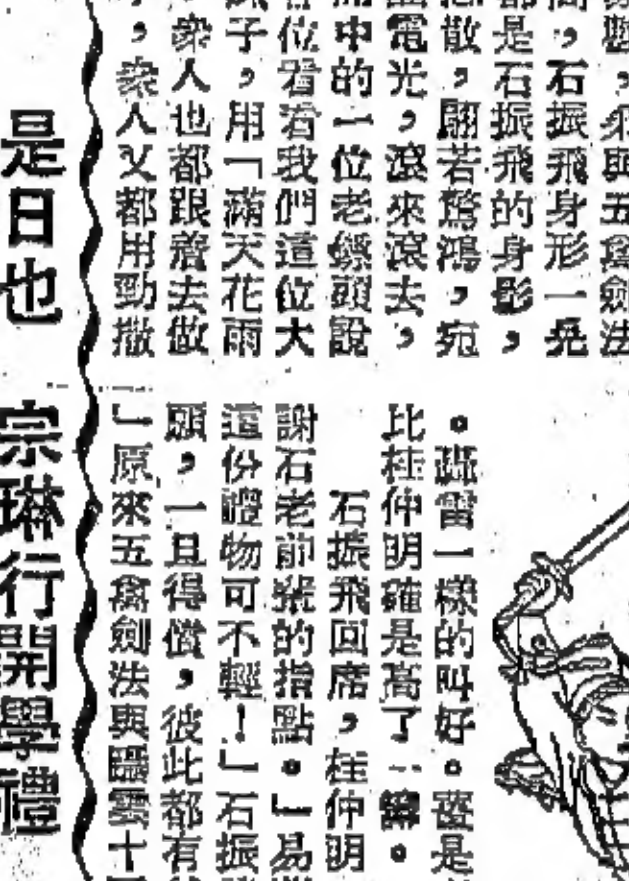 與五禽劍法
，石振飛身形一晃
都是石振飛的身影，
散，翩若驚鴻，宛
電光，滾來滾去，
中的一位老鏢頭說
位看看我們這位大
子，用「滿天花雨
，衆人也都跟着去做
，衆人又都用勁撒
。轟雷一樣的叫好。是
比桂仲明確是高了一籌。
石振飛回席，桂仲明
謝石老前輩的指點。」易
這份禮物可不輕！」石振
願，一旦得償，彼此都有
」原來五禽劍法與躡雲十
是日也　宗琳行開學禮